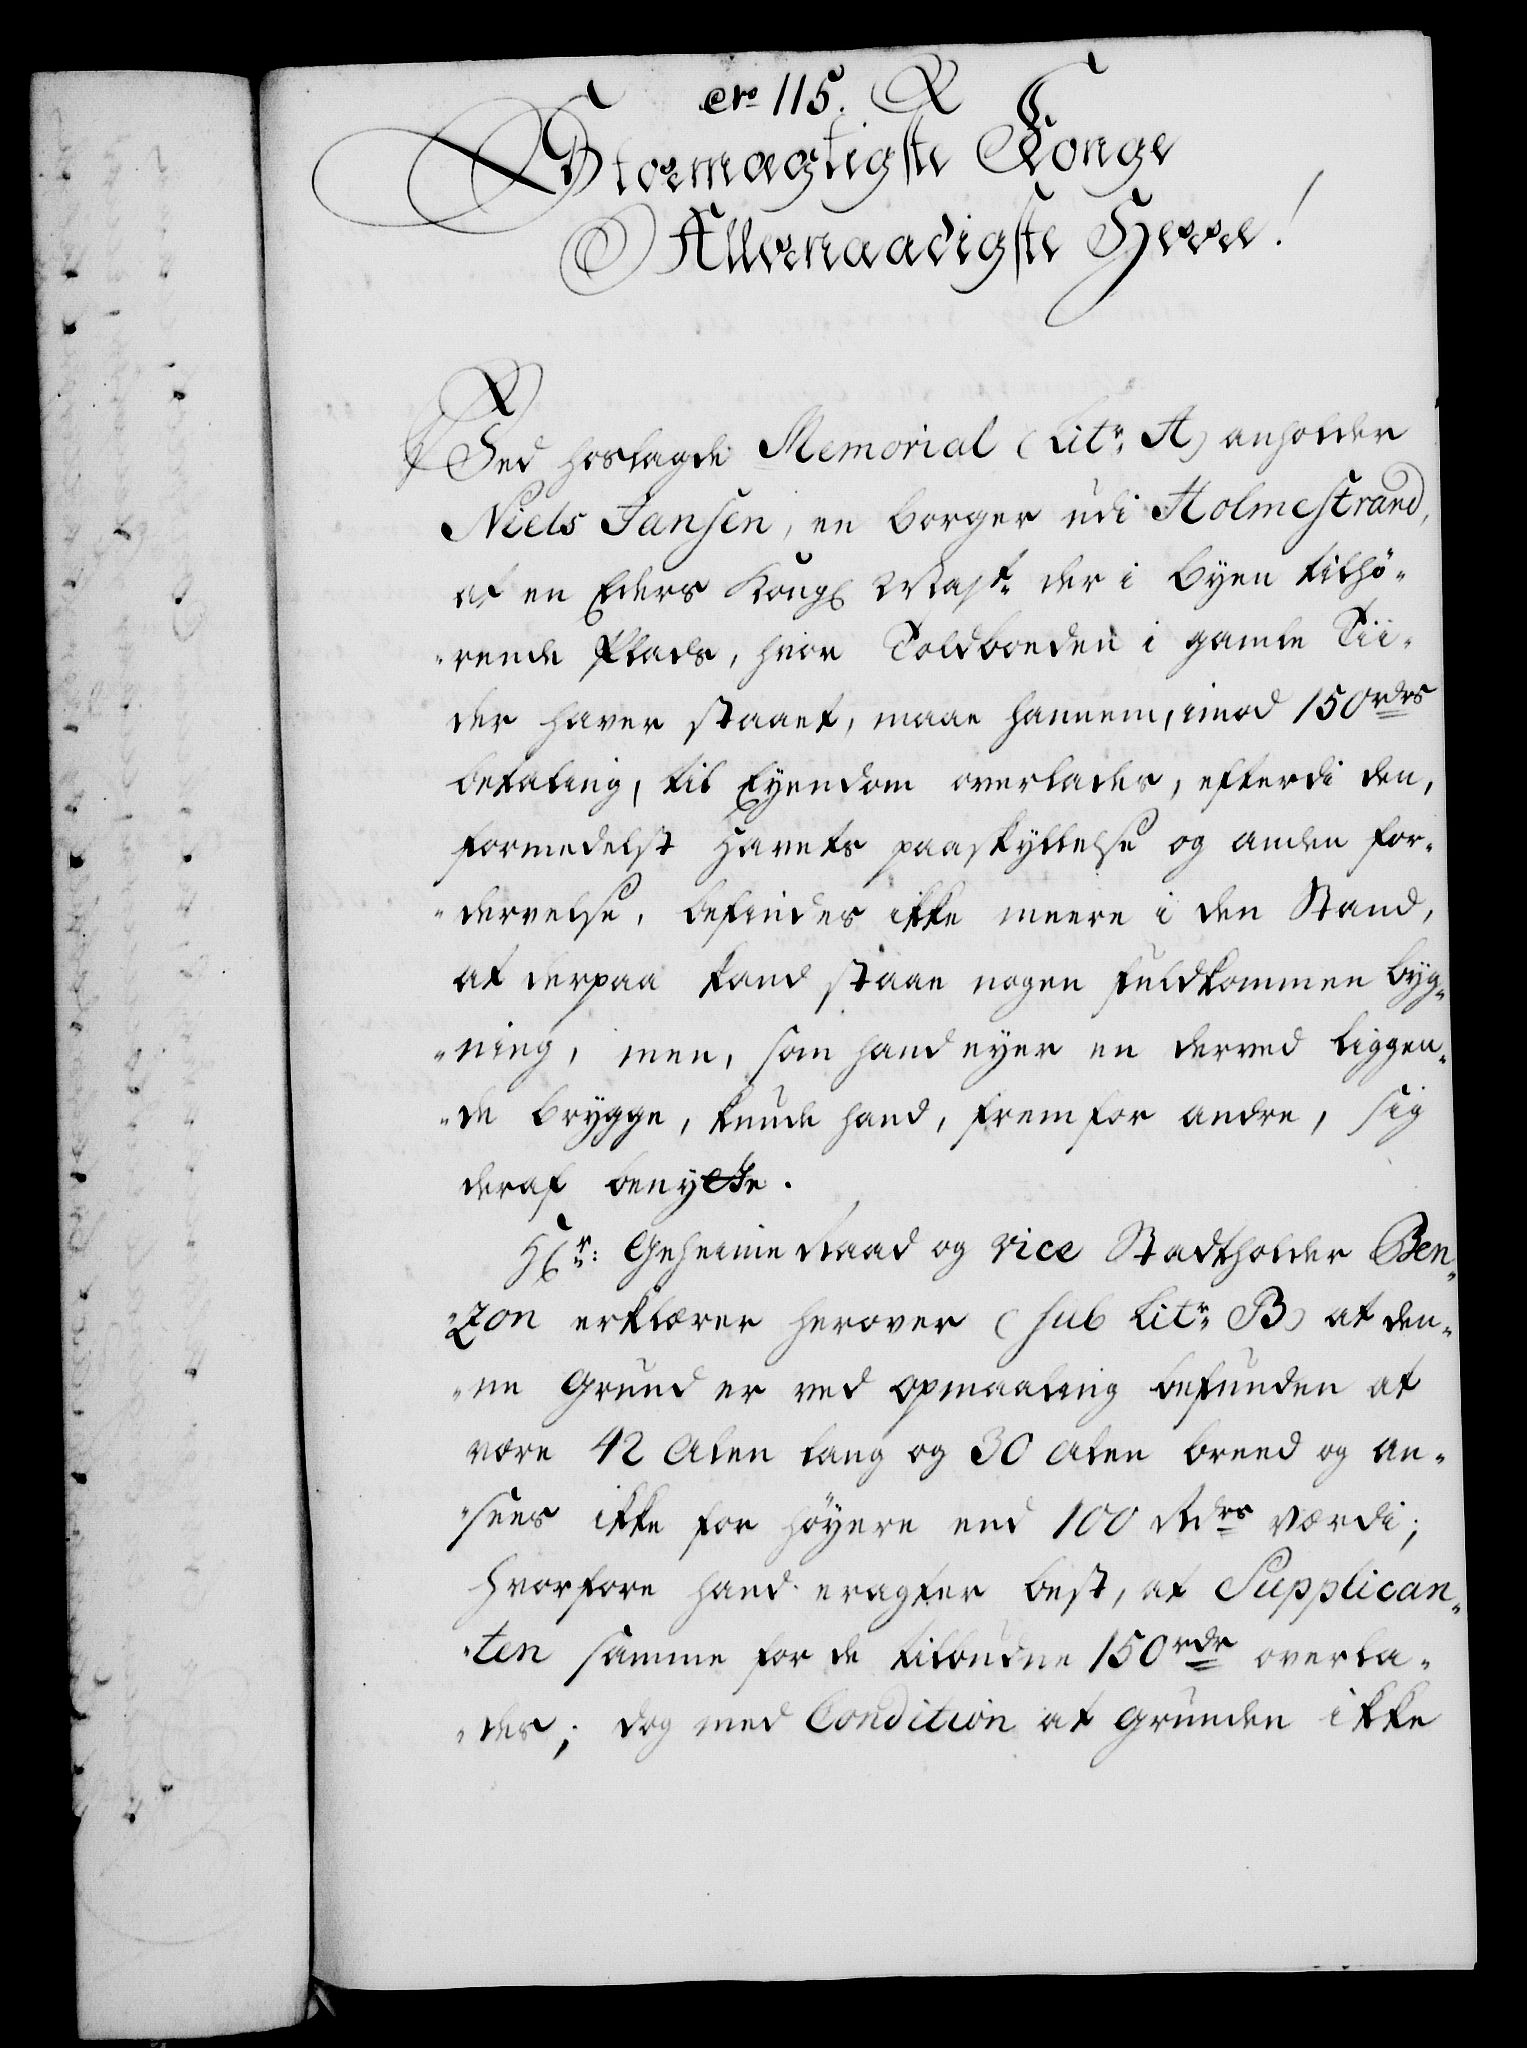 Nro 115.
Stormægtigste Konge
Allernaadigste Herre!
Ved hoslagde Memorial (Litr. A) anholder
Niels Jansen, en borger udi Holmestrand,
at en Eders Kongl Mayst. der i Byen tilhø-
-rende Plads, hvor Toldboeden i gamle Tii-
der haver staaet, maae hannem, imod 150 rdrs
betaling, til Eyendom overlades, efterdi den,
formedelst Havets paaskyllelse og anden for-
-dervelse, befindes ikke meere i den Stand,
at derpaa kand staae nogen fuldkommen byg-
-ning, men, som hand eyer en derved liggen-
-de brygge, kunde hand, fremfor andre, sig
deraf benytte.
Hr: Geheime Raad og vice Stadtholder Ben-
-zon erklærer herover (sub Litr B) at den-
-ne Grund er ved opmaaling befunden at
være 42 Alen lang og 30 Alen breed og an-
-sees ikke for höyere end 100 Rdrs værdi;
hvorfore hand eragter best, at Supplican-
-ten samme for de tilbudne 150 rdr overla-
-des; dog med Condition at Grunden ikke